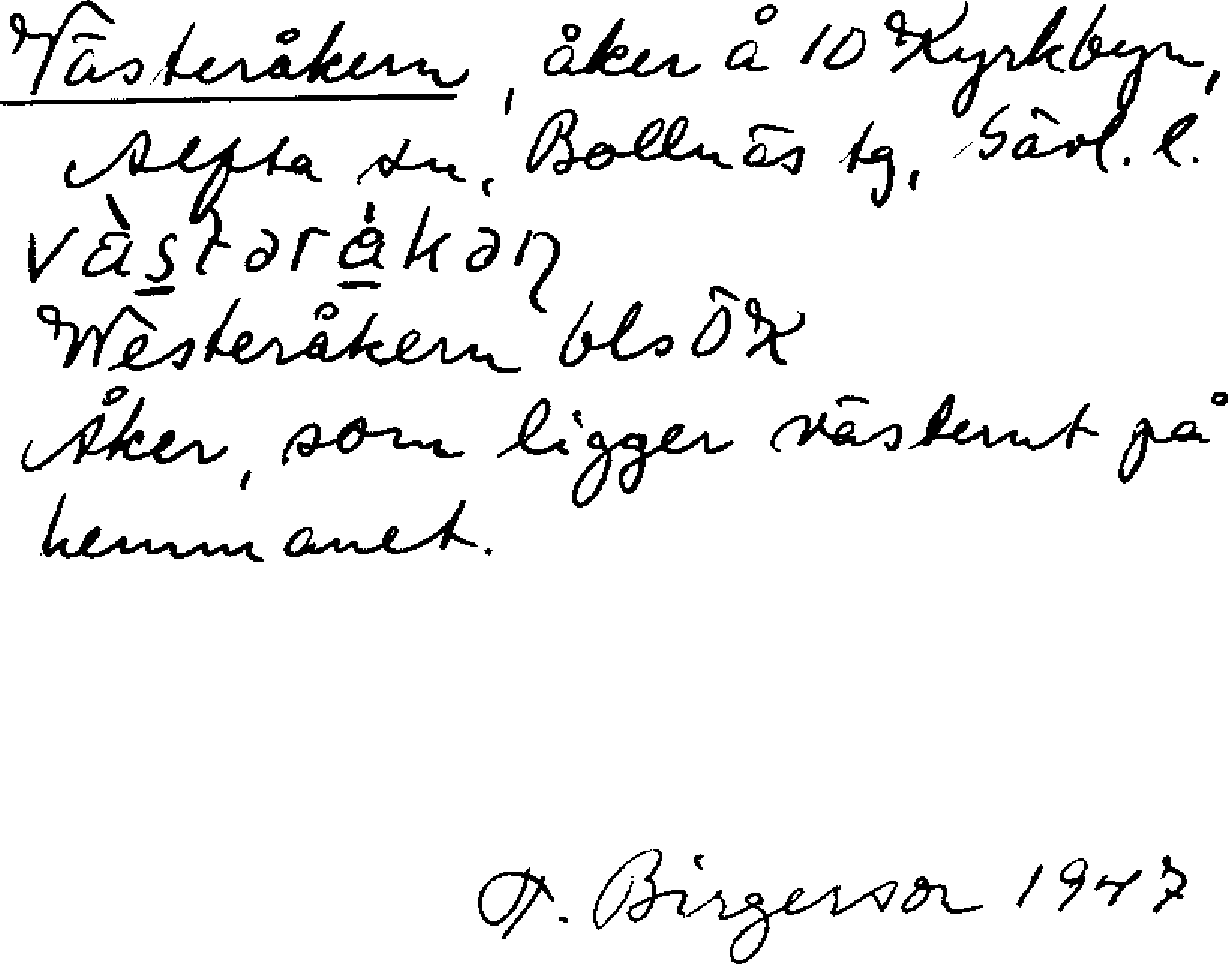 Västeråkern, åker å 10 Kyrkbyn,
Alfta sn, Bollnäs tg, Gävl. l.
västəråkəŋ
Westeråkern bls ÖK
Åker, som ligger västerut på
hemmanet.
F. Birgerson 1947